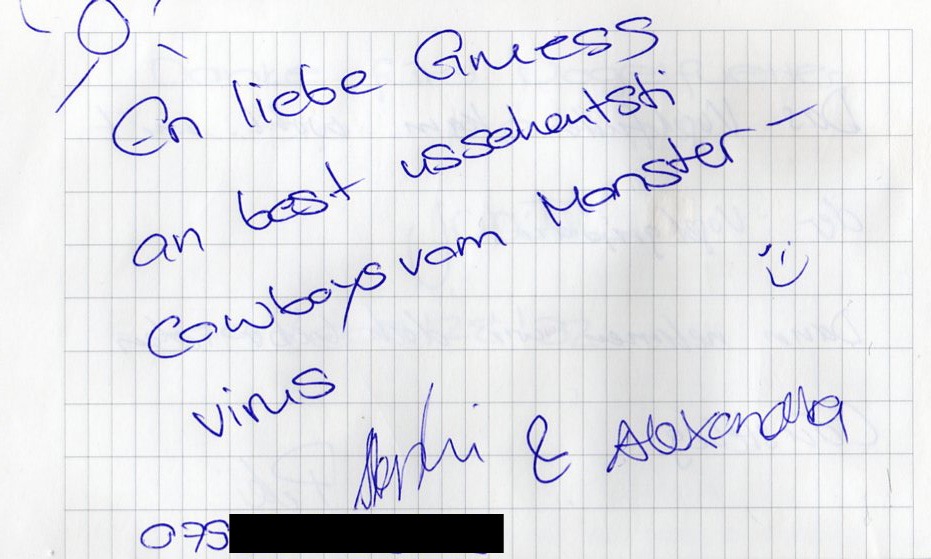 En liebe Gruess
an best ussehentsti
Cowboys vom Monster-
virus
& Alexandra
079